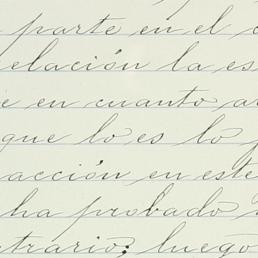 parte en el
elación la es
e en cuanto a
que lo es lo
acción en este
ha probado
trario; luego